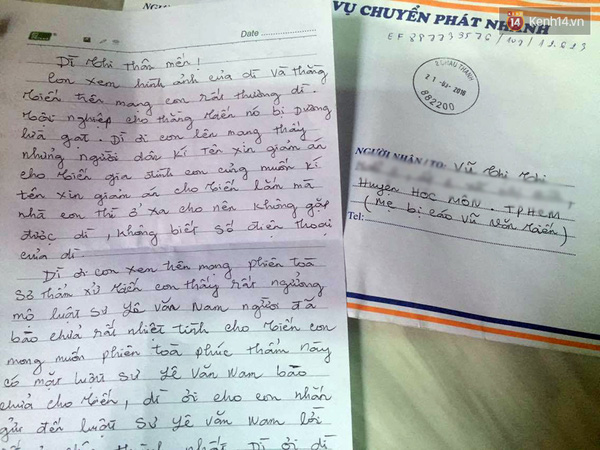 Date
Dì Thi Thân mến !
Con xem hình ảnh của dì và thằng
Miến trên mang con rất thương dì.
Tội nghiệp cho thằng Miến nó bị Dương
lừa gạt. Dì ơi con lên mang thấy
những người dân kí tên xin giảm án
cho Miến gia đình con cũng muốn kí
tên xin giảm án cho Miến lắm mà
nhà con thì ở xa cho nên không gặp
được dì, không biết số điện thoại
của dì
Dì ơi con xem trên mang phiên toà
sơ thẩm xử Miến con thấy rất ngưỡng
mộ luật sư Lê Văn Nam người đã
bào chữa rất nhiệt tình cho Miến con
mong muốn phiên toà phúc thẩm này
có mặt luật sư Lê Văn Nam bào
chữa cho Miến, dì ơi cho con nhắn
gửi đến luật sư Lê Văn Nam lời
thành nhất Dì ơi dì
VỤ CHUYỂN PHÁT NHANH
14
Kenh14.vn
CHƠN THÀNH
882200
NGƯỜI NHẬN/TO: Vũ Thi Thi
Huyện Hóc Môn. TPHCM
(Mẹ bị cáo Vũ Văn Miến)
Tel: